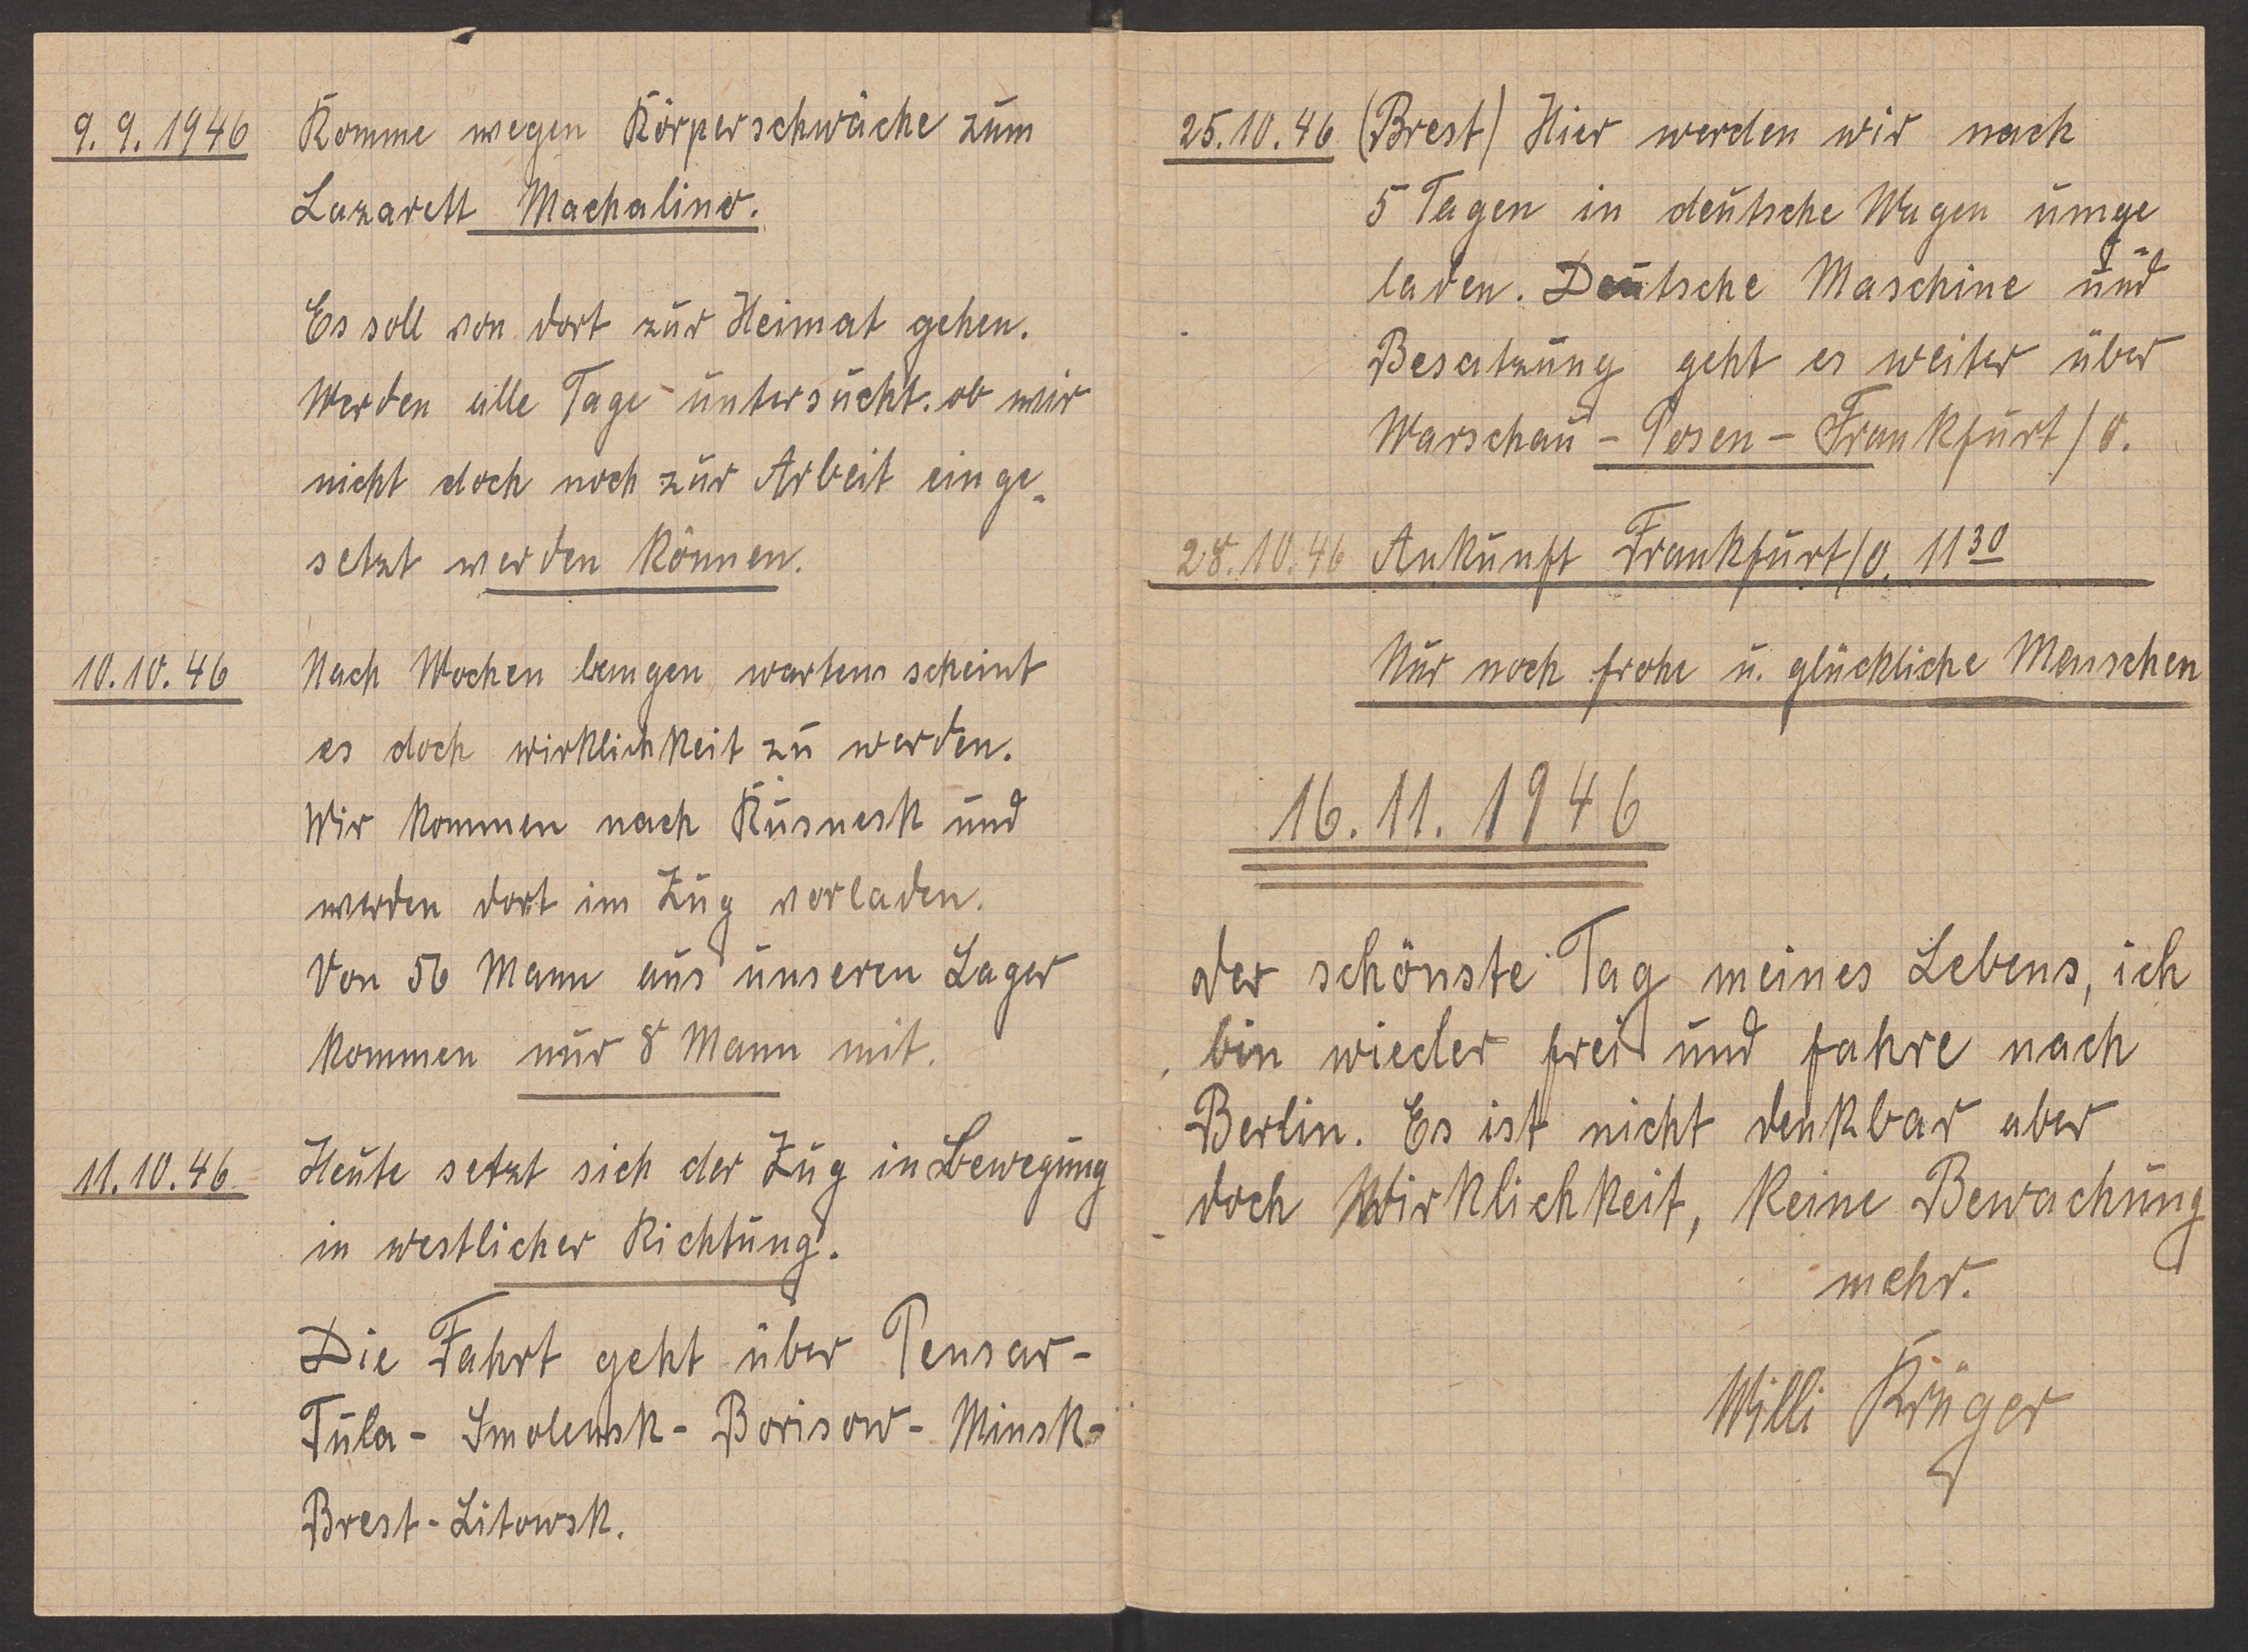 9.9.1946 Komme wegen Körperschwäche zum
Lazarett Machalino.
Es soll von dort zur Heimat gehen.
Werden alle Tage untersucht. ob wir
nicht doch noch zur Arbeit einge-
setzt werden können.
10.10.46 Nach Wochen langen wartens scheint
es doch wirklichkeit zu werden.
Wir kommen nach Kusnesk und
werden dort im Zug verladen.
Von 56 Mann aus unseren Lager
kommen nur 8 Mann mit.
11.10.46 Heute setzt sich der Zug in Bewegung
in westlicher Richtung.
Die Fahrt geht über Pensar-
Tula - Smolensk - Borisow - Minsk-
Brest-Litowsk.
25.10.46 (Brest) Hier werden wir nach
5 Tagen in deutsche Wagen umge
laden. Deutsche Maschine und
Besatzung geht es weiter über
Warschau - Posen - Frankfurt/O.
28.10.46 Ankunft Frankfurt/O. 11 30
Nur noch frohe u. glückliche Menschen
16.11.1946
der schönste Tag meines Lebens, ich
bin wieder frei und fahre nach
Berlin. Es ist nicht denkbar aber
doch Wirklichkeit, keine Bewachung
mehr.
Willi Krüger